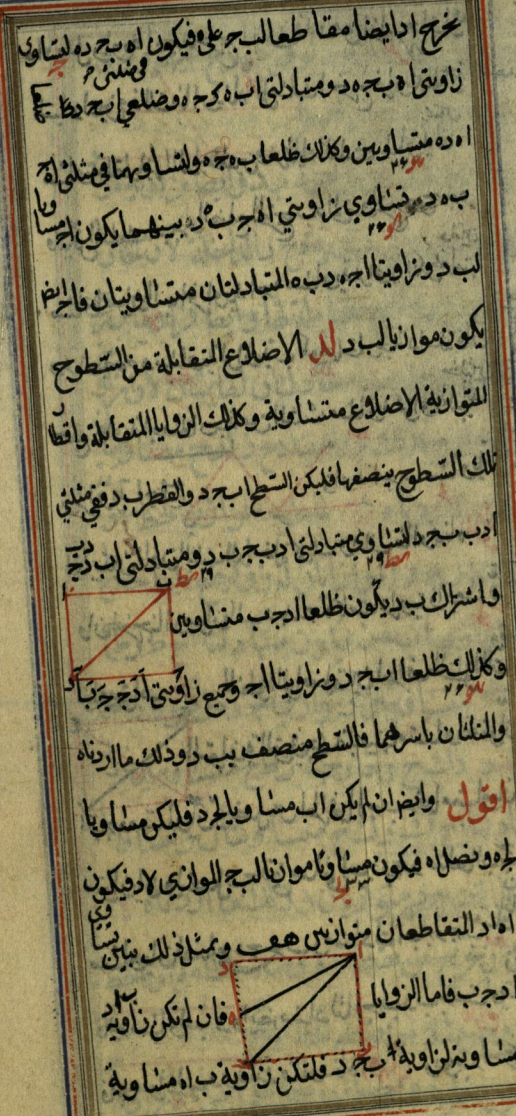 نخرج اد ايضا مقاطعا لب ج على ه فيكون اه ب ج ده لتساوى
فى مثلثى
زاويتى اه ب ج ه د ومتبادلتى اب ه ج وضلعى اب ج د
اه ده متساويين وكذلك ضلعا ب ه ج ه ولتساويهما فى مثلثى اه ج
ب ه د وتساوى زاويتى اه ج ب ه د بينهما يكون اج مساويا
لب د وزاويتا اج ه د ب ه المتبادلتان متساويتان فاج ايض
يكون موازيا لب د لد الاضلاع المتقابلة من السطوح
المتوازية الاضلاع متساوية وكذلك الزوايا المتقابلة واقطار
تلك السطوح ينصفها فليكن السطح اب ج د والقطر ب د ففى مثلثى
ادب ب ج د لتساوى متبادلتى ادب ج ب د ومتبادلتى اب د ج د ب
واشتراك ب د يكون ضلعا اد ج ب متساويين
وكذلك ضلعا اب ج د وزاويتا اج وجميع زاويتى
والمثلثان باسرهما فالسطح منصف بب د وذلك ما اردناه
اقول وايض ان لم يكن اب مساويا لج د فليكن مساويا
لج ه ونصل اه فيكون مساويا موازيا لب ج الموازى لاد فيكون
اه اد المتقاطعان متوازيين هف وبمثل ذلك يتبين تساوى
اد ج ب فاما الزوايا فان لم تكن زاوية
مساوية لزاوية ب ج د فلتكن زاوية ب اه مساوية